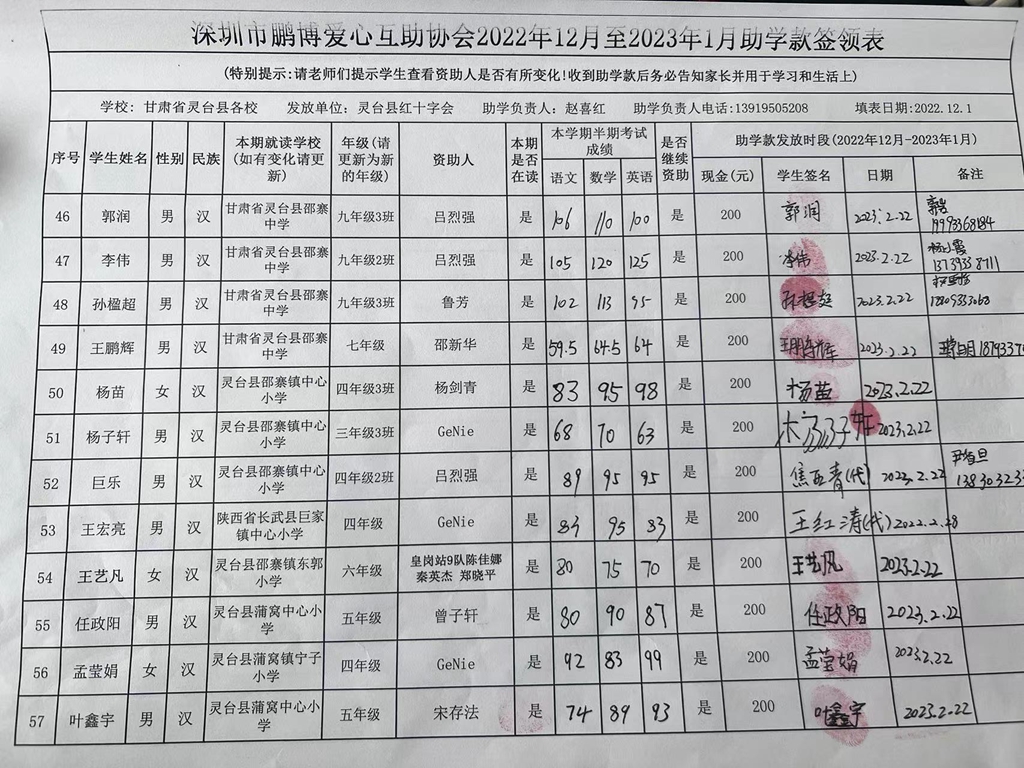 深圳市鹏博爱心互助协会2022年12月至2023年1月助学款签领表
(特别提示:请老师们提示学生查看资助人是否有所变化!收到助学款后务必告知家长并用于学习和生活上)
学校: 甘肃省灵台县各校 发放单位: 灵台县红十字会 助学负责人: 赵喜红 助学负责人电话:13919505208 填表日期:2022.12.1
序号 学生姓名 性别 民族 本期就读学校(如有变化请更新) 年级(请更新为新的年级) 资助人 本期是否在读 本学期半期考试成绩 语文 数学 英语 是否继续资助 助学款发放时段(2022年12月-2023年1月) 现金(元) 学生签名 日期 备注
46 郭润 男 汉 甘肃省灵台县邵寨中学 九年级3班 吕烈强 是 106 110 100 是 200 郭润 2023.2.22
47 李伟 男 汉 甘肃省灵台县邵寨中学 九年级2班 吕烈强 是 105 120 125 是 200 李伟 2023.2.22
48 孙楹超 男 汉 甘肃省灵台县邵寨中学 九年级3班 鲁芳 是 102 113 95 是 200 孙楹超 2023.2.22
49 王鹏辉 男 汉 甘肃省灵台县邵寨中学 七年级 邵新华 是 59.5 64.5 64 是 200 王鹏辉 2023.2.22
50 杨苗 女 汉 灵台县邵寨镇中心小学 四年级3班 杨剑青 是 83 95 98 是 200 杨苗 2023.2.22
51 杨子轩 男 汉 灵台县邵寨镇中心小学 三年级3班 GeNie 是 68 70 63 是 200 杨子轩 2023.2.22
52 巨乐 男 汉 灵台县邵寨镇中心小学 四年级2班 吕烈强 是 89 95 95 是 200 焦亚青(代) 2023.2.22
53 王宏亮 男 汉 陕西省长武县巨家镇中心小学 四年级 GeNie 是 83 95 83 是 200 王红涛(代) 2022.2.28
54 王艺凡 女 汉 灵台县邵寨镇东郭小学 六年级 皇岗站9队陈佳娜 秦英杰 郑晓平 是 80 75 70 是 200 王艺凡 2023.2.22
55 任政阳 男 汉 灵台县蒲窝中心小学 五年级 曾子轩 是 80 90 87 是 200 任政阳 2023.2.22
56 孟莹娟 女 汉 灵台县蒲窝镇宁子小学 四年级 GeNie 是 92 83 99 是 200 孟莹娟 2023.2.22
57 叶鑫宇 男 汉 灵台县蒲窝中心小学 五年级 宋存法 是 74 89 93 是 200 叶鑫宇 2023.2.22